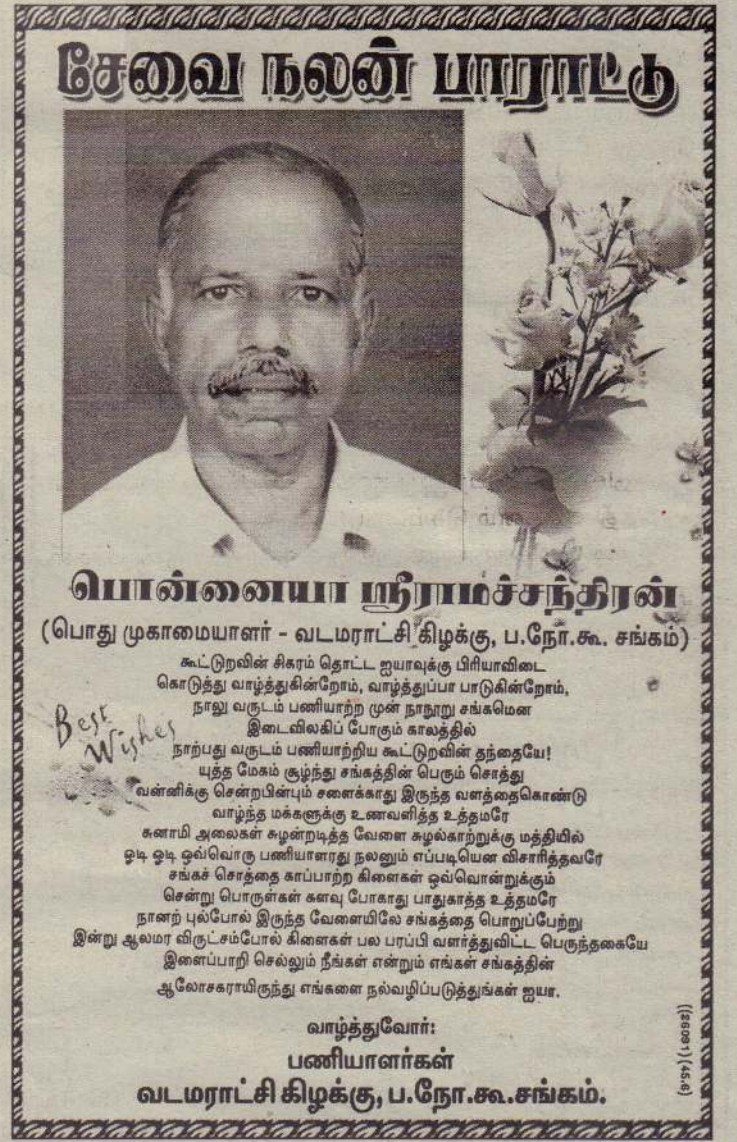 சேவை நலன் பாராட்டு
பொன்னையா ஸ்ரீராமச்சந்திரன்
(பொது முகாமையாளர் - வடமராட்சி கிழக்கு, ப.நோ.கூ. சங்கம்)
கூட்டுறவின் சிகரம் தொட்ட ஐயாவுக்கு பிரியாவிடை
கொடுத்து வாழ்த்துகின்றோம், வாழ்த்துப்பா பாடுகின்றோம்,
நாலு வருடம் பணியாற்ற முன் நாநூறு சங்கமென
இடைவிலகிப் போகும் காலத்தில்
நாற்பது வருடம் பணியாற்றிய கூட்டுறவின் தந்தையே!
யுத்த மேகம் சூழ்ந்து சங்கத்தின் பெரும் சொத்து
வன்னிக்கு சென்றபின்பும் சளைக்காது இருந்த வளத்தைகொண்டு
வாழ்ந்த மக்களுக்கு உணவளித்த உத்தமரே
சுனாமி அலைகள் சுழன்றடித்த வேளை சுழல்காற்றுக்கு மத்தியில்
ஓடி ஓடி ஒவ்வொரு பணியாளரது நலனும் எப்படியென விசாரித்தவரே
சங்கச் சொத்தை காப்பாற்ற கிளைகள் ஒவ்வொன்றுக்கும்
சென்று பொருள்கள் களவு போகாது பாதுகாத்த உத்தமரே
நானற் புல்போல் இருந்த வேளையிலே சங்கத்தை பொறுப்பேற்று
இன்று ஆலமர விருட்சம்போல் கிளைகள் பல பரப்பி வளர்த்துவிட்ட பெருந்தகையே
இளைப்பாறி செல்லும் நீங்கள் என்றும் எங்கள் சங்கத்தின்
ஆலோசகராயிருந்து எங்களை நல்வழிப்படுத்துங்கள் ஐயா.
Best
Wishes
வாழ்த்துவோர்:
பணியாளர்கள்
வடமராட்சி கிழக்கு, ப.நோ.கூ.சங்கம்.
((26091)(45.6)